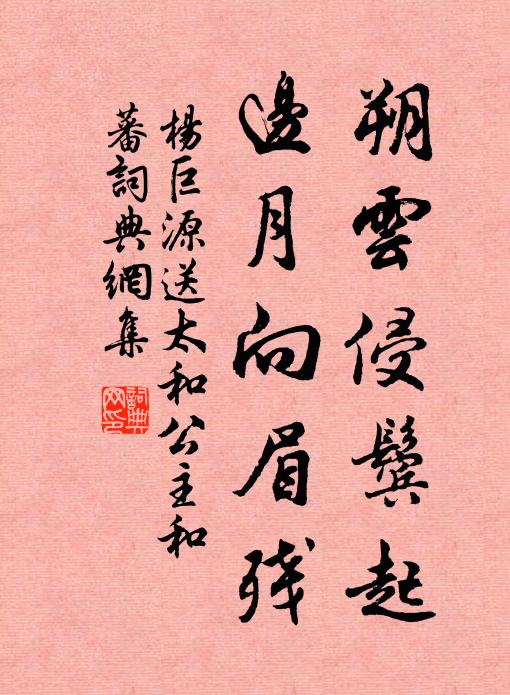 朔雲侵鬢起
邊月向眉殘
楊巨源送太和公主和
蕃詞典網集
詞典
网印